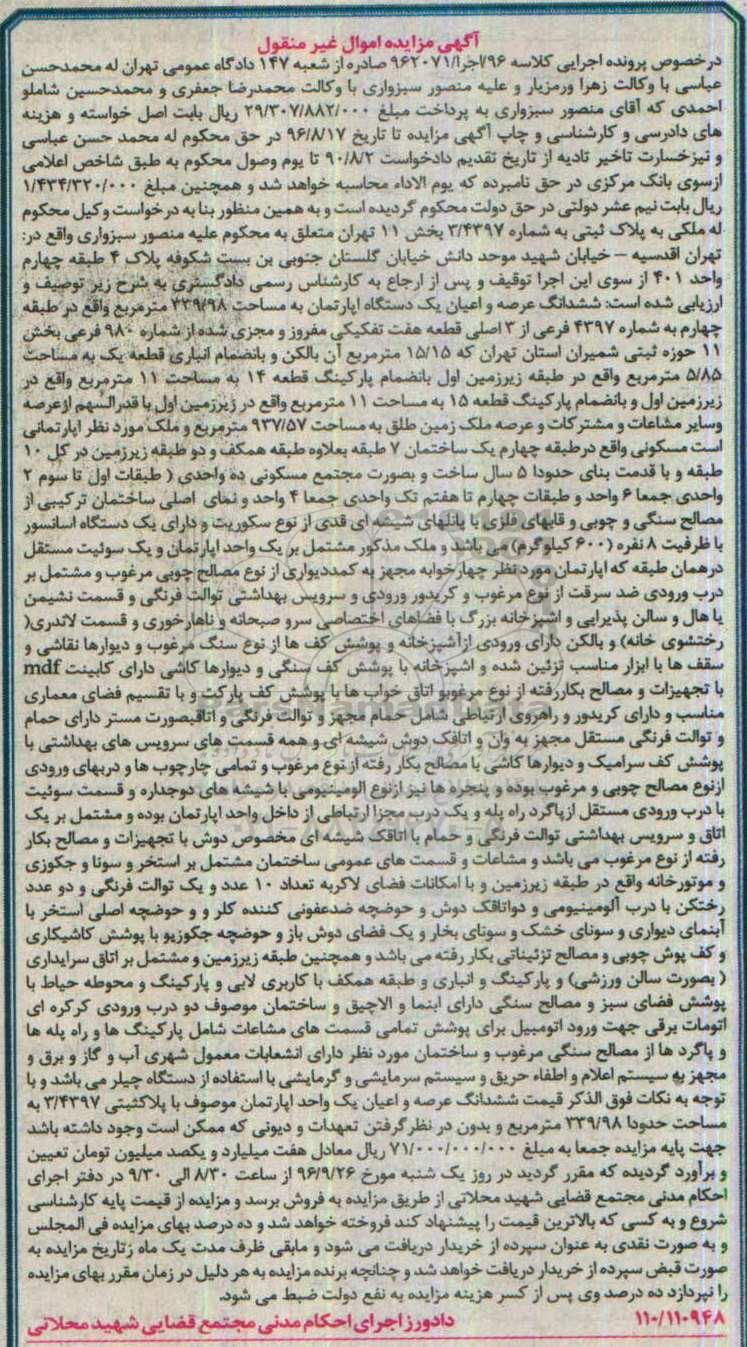 آگهی مزایده اموال غیر منقول
درخصوص پرونده اجرایی کلاسه ۹۶/اجرا/۹۶۲۰۷۱ صادره از شعبه ۱۴۷ دادگاه عمومی تهران له محمدحسن
عباسی با وکالت زهرا ورمزیار و علیه منصور سبزواری با وکالت محمدرضا جعفری و محمدحسین شاملو
احمدی که آقای منصور سبزواری به پرداخت مبلغ ۲۹/۳۰۷/۸۸۲/۰۰۰ ریال بابت اصل خواسته و هزینه
های دادرسی و کارشناسی و چاپ آگهی مزایده تا تاریخ ۹۶/۸/۱۷ در حق محکوم له محمد حسن عباسی
و نیزخسارت تاخیر تادیه از تاریخ تقدیم دادخواست ۹۰/۸/۲ تا یوم وصول محکوم به طبق شاخص اعلامی
ازسوی بانک مرکزی در حق نامبرده که یوم الاداء محاسبه خواهد شد و همچنین مبلغ ۱/۴۳۴/۳۲۰/۰۰۰
ریال بابت نیم عشر دولتی در حق دولت محکوم گردیده است و به همین منظور بنا به درخواست وکیل محکوم
له ملکی به پلاک ثبتی به شماره ۳/۴۳۹۷ بخش ۱۱ تهران متعلق به محکوم علیه منصور سبزواری واقع در:
تهران اقدسیه – خیابان شهید موحد دانش خیابان گلستان جنوبی بن بست شکوفه پلاک ۴ طبقه چهارم
واحد ۴۰۱ از سوی این اجرا توقیف و پس از ارجاع به کارشناس رسمی دادگستری به شرح زیر توصیف و
ارزیابی شده است: ششدانگ عرصه و اعیان یک دستگاه اپارتمان به مساحت ۳۳۹/۹۸ مترمربع واقع در طبقه
چهارم به شماره ۴۳۹۷ فرعی از ۳ اصلی قطعه هفت تفکیکی مفروز و مجزی شده از شماره ۹۸۰ فرعی بخش
۱۱ حوزه ثبتی شمیران استان تهران که ۱۵/۱۵ مترمربع آن بالکن و بانضمام انباری قطعه یک به مساحت
۵/۸۵ مترمربع واقع در طبقه زیرزمین اول بانضمام پارکینگ قطعه ۱۴ به مساحت ۱۱ مترمربع واقع در
زیرزمین اول و بانضمام پارکینگ قطعه ۱۵ به مساحت ۱۱ مترمربع واقع در زیرزمین اول با قدرالسهم ازعرصه
وسایر مشاعات و مشترکات و عرصه ملک زمین طلق به مساحت ۹۳۷/۵۷ مترمربع و ملک مورد نظر اپارتمانی
است مسکونی واقع درطبقه چهارم یک ساختمان ۷ طبقه بعلاوه طبقه همکف و دو طبقه زیرزمین در کل ۱۰
طبقه و با قدمت بنای حدودا ۵ سال ساخت و بصورت مجتمع مسکونی ده واحدی ( طبقات اول تا سوم ۲
واحدی جمعا ۶ واحد و طبقات چهارم تا هفتم تک واحدی جمعا ۴ واحد و نمای اصلی ساختمان ترکیبی از
مصالح سنگی و چوبی و قابهای فلزی با پانلهای شیشه ای قدی از نوع سکوریت و دارای یک دستگاه اسانسور
با ظرفیت ۸ نفره (۶۰۰ کیلوگرم) می باشد و ملک مذکور مشتمل بر یک واحد اپارتمان و یک سوئیت مستقل
درهمان طبقه که اپارتمان مورد نظر چهارخوابه مجهز به کمددیواری از نوع مصالح چوبی مرغوب و مشتمل بر
درب ورودی ضد سرقت از نوع مرغوب و کریدور ورودی و سرویس بهداشتی توالت فرنگی و قسمت نشیمن
یا هال و سالن پذیرایی و اشپزخانه بزرگ با فضاهای اختصاصی سرو صبحانه و ناهارخوری و قسمت لاندری(
رختشوی خانه) و بالکن دارای ورودی ازآشپزخانه و پوشش کف ها از نوع سنگ مرغوب و دیوارها نقاشی و
سقف ها با ابزار مناسب تزئین شده و اشپزخانه با پوشش کف سنگی و دیوارها کاشی دارای کابینت mdf
با تجهیزات و مصالح بکاررفته از نوع مرغوبو اتاق خواب ها با پوشش کف پارکت و با تقسیم فضای معماری
مناسب و دارای کریدور و راهروی ارتباطی شامل حمام مجهز و توالت فرنگی و اتاقبصورت مستر دارای حمام
و توالت فرنگی مستقل مجهز به وان و اتاقک دوش شیشه ای و همه قسمت های سرویس های بهداشتی با
پوشش کف سرامیک و دیوارها کاشی با مصالح بکار رفته از نوع مرغوب و تمامی چارچوب ها و دربهای ورودی
ازنوع مصالح چوبی و مرغوب بوده و پنجره ها نیز ازنوع الومینیومی با شیشه های دوجداره و قسمت سوئیت
با درب ورودی مستقل ازپاگرد راه پله و یک درب مجزا ارتباطی از داخل واحد اپارتمان بوده و مشتمل بر یک
اتاق و سرویس بهداشتی توالت فرنگی و حمام با اتاقک شیشه ای مخصوص دوش با تجهیزات و مصالح بکار
رفته از نوع مرغوب می باشد و مشاعات و قسمت های عمومی ساختمان مشتمل بر استخر و سونا و جکوزی
و موتورخانه واقع در طبقه زیرزمین و با امکانات فضای لاکربه تعداد ۱۰ عدد و یک توالت فرنگی و دو عدد
رختکن با درب آلومینیومی و دواتاقک دوش و حوضچه ضدعفونی کننده کلر و و حوضچه اصلی استخر با
آبنمای دیواری و سونای خشک و سونای بخار و یک فضای دوش باز و حوضچه جکوزیو با پوشش کاشیکاری
و کف پوش چوبی و مصالح تزئیناتی بکار رفته می باشد و همچنین طبقه زیرزمین و مشتمل بر اتاق سرایداری
( بصورت سالن ورزشی) و پارکینگ و انباری و طبقه همکف با کاربری لابی و پارکینگ و محوطه حیاط با
پوشش فضای سبز و مصالح سنگی دارای ابنما و الاچیق و ساختمان موصوف دو درب ورودی کرکره ای
اتومات برقی جهت ورود اتومبیل برای پوشش تمامی قسمت های مشاعات شامل پارکینگ ها و راه پله ها
و پاگرد ها از مصالح سنگی مرغوب و ساختمان مورد نظر دارای انشعابات معمول شهری آب و گاز و برق و
مجهز به سیستم اعلام و اطفاء حریق و سیستم سرمایشی و گرمایشی با استفاده از دستگاه چیلر می باشد و با
توجه به نکات فوق الذکر قیمت ششدانگ عرصه و اعیان یک واحد اپارتمان موصوف با پلاکثبتی ۳/۴۳۹۷ به
مساحت حدودا ۳۳۹/۹۸ مترمربع و بدون در نظر گرفتن تعهدات و دیونی که ممکن است وجود داشته باشد
جهت پایه مزایده جمعا به مبلغ ۷۱/۰۰۰/۰۰۰/۰۰۰ ریال معادل هفت میلیارد و یکصد میلیون تومان تعیین
و برآورد گردیده که مقرر گردید در روز یک شنبه مورخ ۹۶/۹/۲۶ از ساعت ۸/۳۰ الی ۹/۳۰ در دفتر اجرای
احکام مدنی مجتمع قضایی شهید محلاتی از طریق مزایده به فروش برسد و مزایده از قیمت پایه کارشناسی
شروع و به کسی که بالاترین قیمت را پیشنهاد کند فروخته خواهد شد و ده درصد بهای مزایده فی المجلس
و به صورت نقدی به عنوان سپرده از خریدار دریافت می شود و مابقی ظرف مدت یک ماه زتاریخ مزایده به
صورت قبض سپرده از خریدار دریافت خواهد شد و چنانچه برنده مزایده به هر دلیل در زمان مقرر بهای مزایده
را نپردازد ده درصد وی پس از کسر هزینه مزایده به نفع دولت ضبط می شود.
۱۱۰/۱۱۰۹۴۸ دادورز اجرای احکام مدنی مجتمع قضایی شهید محلاتی